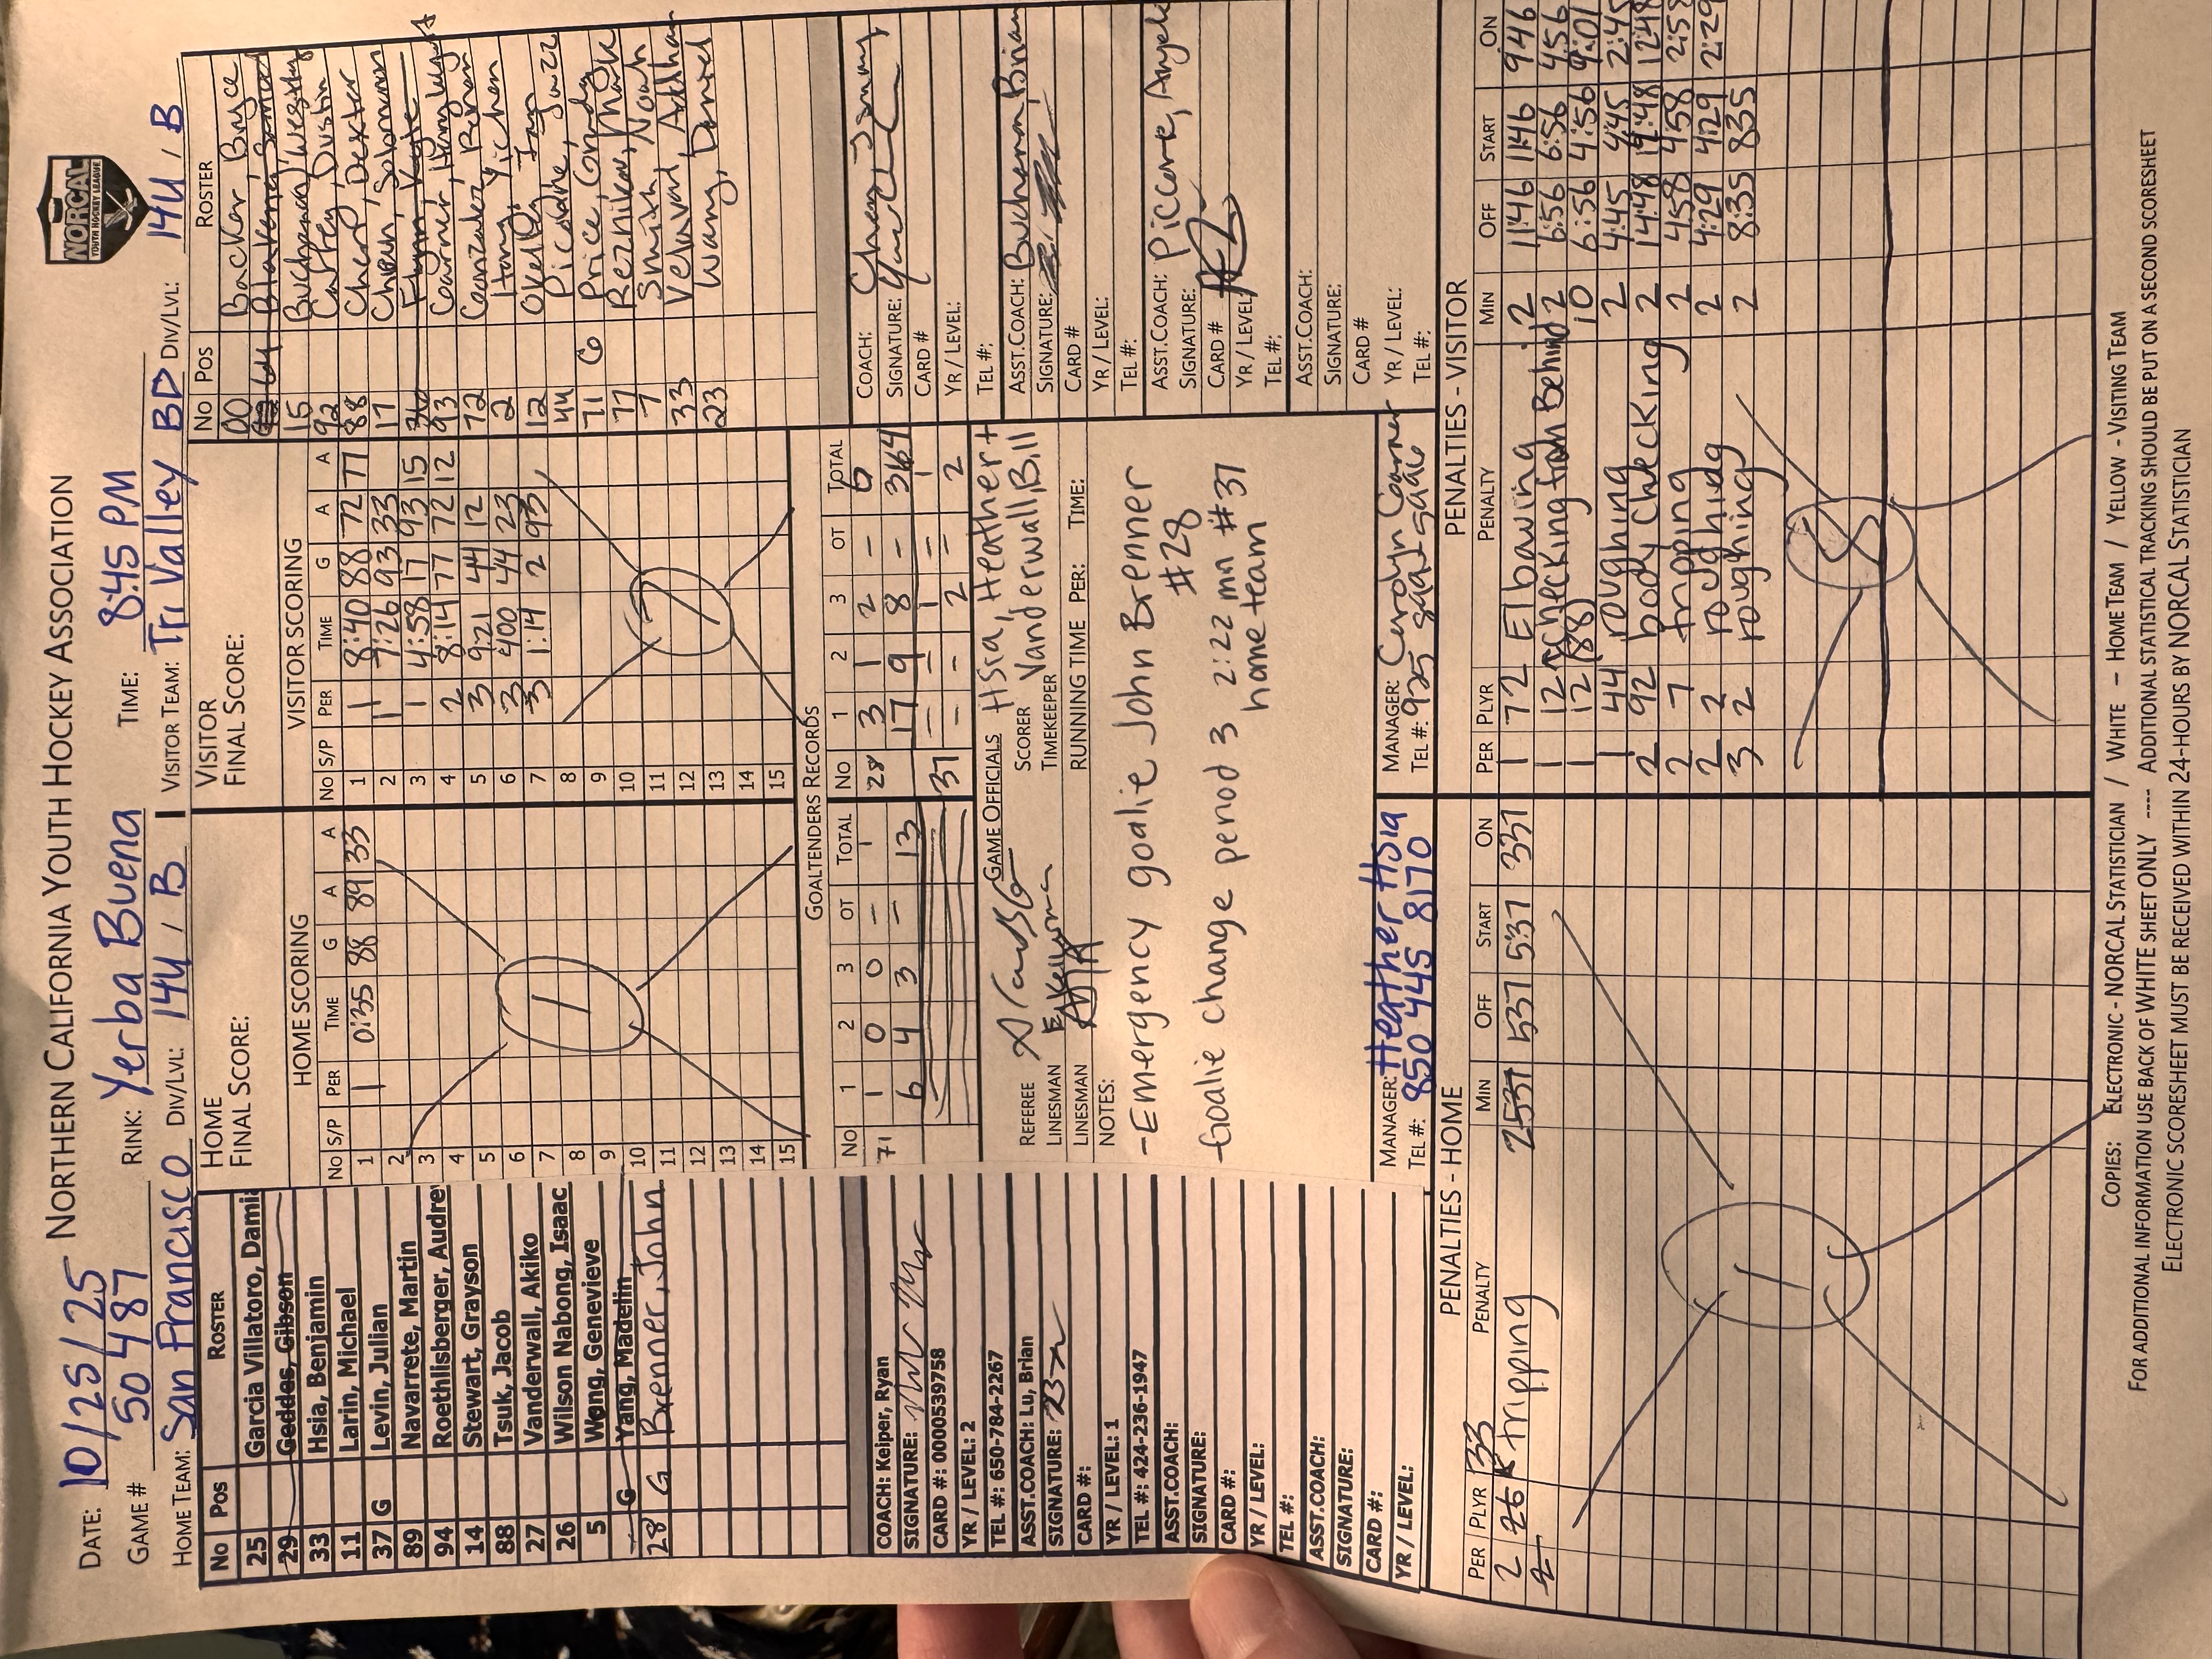 NORTHERN CALIFORNIA YOUTH HOCKEY ASSOCIATION
NORCAL
YOUTH HOCKEY LEAGUE
DATE: 10/25/25
GAME # 50487 RINK: Yerba Buena TIME: 8:45 PM
HOME TEAM: San Francisco DIV/LVL: 14U / B VISITOR TEAM: Tri Valley BD DIV/LVL: 14U / B
No Pos ROSTER
25 Garcia Villatoro, Damia
29 Geddes, Gibson
33 Hsia, Benjamin
11 Larin, Michael
37 G Levin, Julian
89 Navarrete, Martin
94 Roethlisberger, Audre
14 Stewart, Grayson
88 Tsuk, Jacob
27 Vanderwall, Akiko
26 Wilson Nabong, Isaac
5 Wong, Genevieve
G Yang, Madelin
28 G Brenner, John
COACH: Keiper, Ryan
SIGNATURE:
CARD #: 0000539758
YR / LEVEL: 2
TEL #: 650-784-2267
ASST.COACH: Lu, Brian
SIGNATURE:
CARD #:
YR / LEVEL: 1
TEL #: 424-236-1947
ASST.COACH:
SIGNATURE:
CARD #:
YR / LEVEL:
TEL #:
ASST.COACH:
SIGNATURE:
CARD #:
YR / LEVEL:
HOME
FINAL SCORE:
HOME SCORING
No S/P PER TIME G A A
1 1 0:35 88 89 33
2
3
4
5
6
7
8
9
10
11
12
13
14
15
1
VISITOR
FINAL SCORE:
VISITOR SCORING
No S/P PER TIME G A A
1 1 8:40 88 72 77
2 1 7:26 93 33
3 1 4:58 17 93 15
4 2 8:14 77 72 12
5 3 9:21 44 12
6 3 400 44 23
7 3 1:14 2 93
8
9
10
11
12
13
14
15
7
GOALTENDERS RECORDS
No 1 2 3 OT TOTAL
71 1 0 0 – 1
6 4 3 – 13
No 1 2 3 OT TOTAL
28 3 1 2 – 6
17 9 8 –
37 – – 1 – 1
– – 2 – 2
GAME OFFICIALS
REFEREE
LINESMAN
LINESMAN
SCORER Hsia, Heather
TIMEKEEPER Vanderwall, Bill
RUNNING TIME PER: TIME:
NOTES:
-Emergency goalie John Brenner
#28
Goalie change period 3 2:22 mn #37
home team
MANAGER: Heather Hsia
TEL #: 850 445 8170
MANAGER:
TEL #: 925
No Pos ROSTER
00 Backer, Bryce
15 Buchanan, Wesley
92 Caffey, Dustin
88 Chern, Dexter
17 Chien, Solomon
93
72 Gonzalez, Ronan
2 Hong, Yichen
12
44
71 G Price, Cormdy
77 Reznikov, Mark
7 Smith, Noah
33 Velavan, Adhar
23 Wang, Daniel
COACH:
SIGNATURE:
CARD #
YR / LEVEL:
TEL #:
ASST.COACH: Buchanan, Brian
SIGNATURE:
CARD #
YR / LEVEL:
TEL #:
ASST.COACH: Piccone, Angel
SIGNATURE:
CARD #
YR / LEVEL:
TEL #:
ASST.COACH:
SIGNATURE:
CARD #
YR / LEVEL:
TEL #:
PENALTIES - HOME
PER PLYR PENALTY MIN OFF START ON
2 33 Tripping 2 537 537 337
1
PENALTIES - VISITOR
PER PLYR PENALTY MIN OFF START ON
1 72 Elbowing 2 11:46 11:46 946
1 12 checking from Behind 2 6:56 6:56 4:56
1 12 (88) 10 6:56 4:56 9:01
1 44 roughing 2 4:45 4:45 2:45
2 92 body checking 2 14:48 14:48 12:48
2 7 tripping 2 458 4:58 2:58
2 2 roughing 2 4:29 4:29 2:29
3 2 roughing 2 8:35 835
8
COPIES: ELECTRONIC - NORCAL STATISTICIAN / WHITE – HOME TEAM / YELLOW - VISITING TEAM
FOR ADDITIONAL INFORMATION USE BACK OF WHITE SHEET ONLY ---- ADDITIONAL STATISTICAL TRACKING SHOULD BE PUT ON A SECOND SCORESHEET
ELECTRONIC SCORESHEET MUST BE RECEIVED WITHIN 24-HOURS BY NORCAL STATISTICIAN